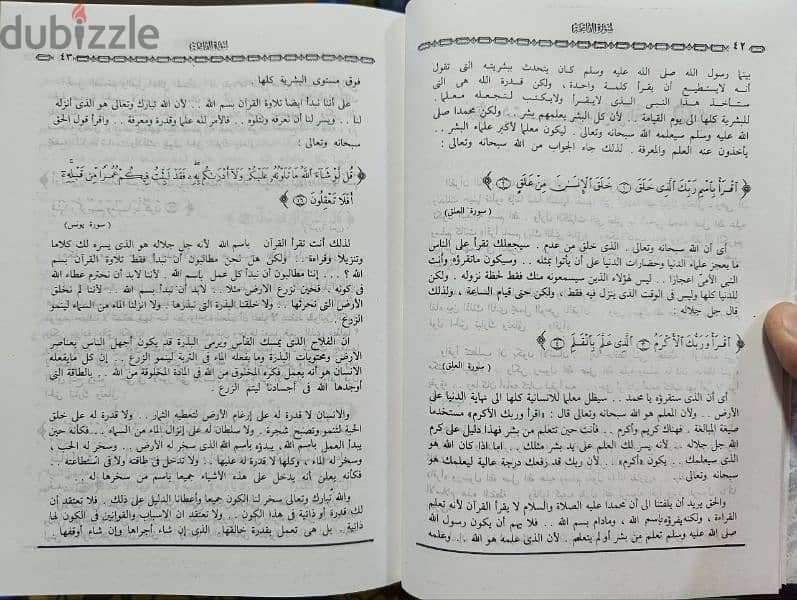 سورة الفاتحة
٤٢
بينما رسول الله صلى الله عليه وسلم كان يتحدث ببشريته التى تقول
أنه لايستطيع أن يقرأ كلمة واحدة ، ولكن قدرة الله هى التى
ستأخذ هذا النبى الذى لايقرأ ولايكتب لتجعله معلما
للبشرية كلها الى يوم القيامة . . لأن كل البشر يعلمهم بشر . . ولكن محمدا صلى
الله عليه وسلم سيعلمه الله سبحانه وتعالى . ليكون معلما لأكبر علماء البشر . .
يأخذون عنه العلم والمعرفة . لذلك جاء الجواب من الله سبحانه وتعالى :
﴿ ٱقْرَأْ بِٱسْمِ رَبِّكَ ٱلَّذِى خَلَقَ ١ خَلَقَ ٱلْإِنسَٰنَ مِنْ عَلَقٍ ٢ ﴾
( سورة العلق )
أى أن الله سبحانه وتعالى . . الذى خلق من عدم . سيجعلك تقرأ على الناس
ما يعجز علماء الدنيا وحضارات الدنيا على أن يأتوا بمثله . . وسيكون ماتقرؤه وأنت
النبى الأمى اعجازا . . ليس لهؤلاء الذين سيسمعونه منك فقط لحظة نزوله . ولكن
للدنيا كلها وليس فى الوقت الذى ينزل فيه فقط ، ولكن حتى قيام الساعة ، ولذلك
قال جل جلاله :
﴿ ٱقْرَأْ وَرَبُّكَ ٱلْأَكْرَمُ ٣ ٱلَّذِى عَلَّمَ بِٱلْقَلَمِ ٤ ﴾
( سورة العلق )
أى أن الذى ستقرؤه يا محمد . . سيظل معلما للانسانية كلها الى نهاية الدنيا على
الأرض . . ولأن المعلم هو الله سبحانه وتعالى قال : «اقرأ وربك الأكرم» مستخدما
صيغة المبالغة . فهناك كريم وأكرم . . فأنت حين تتعلم من بشر فهذا دليل على كرم
الله جل جلاله . . لأنه يسر لك العلم على يد بشر مثلك . . اما اذا كان الله هو
الذى سيعلمك . . يكون «أكرم» . . لأن ربك قد رفعك درجة عالية ليعلمك هو
سبحانه وتعالى
والحق يريد أن يلفتنا الى أن محمدا عليه الصلاة والسلام لا يقرأ القرآن لأنه تعلم
القراءة ، ولكنه يقرؤه باسم الله ، ومادام بسم الله . . فلا يهم أن يكون رسول الله
صلى الله عليه وسلم تعلم من بشر أو لم يتعلم . . لأن الذى علمه هو الله . . وعلمه
سورة الفاتحة
٤٣
فوق مستوى البشرية كلها .
على أننا نبدأ أيضا تلاوة القرآن بسم الله . . لأن الله تبارك وتعالى هو الذى أنزله
لنا . . ويسر لنا أن نعرفه ونتلوه . . فالأمر لله علما وقدرة ومعرفة . . واقرأ قول الحق
سبحانه وتعالى :
﴿ قُل لَّوْ شَآءَ ٱللَّهُ مَا تَلَوْتُهُۥ عَلَيْكُمْ وَلَآ أَدْرَىٰكُم بِهِۦ فَقَدْ لَبِثْتُ فِيكُمْ عُمُرًا مِّن قَبْلِهِۦٓ
أَفَلَا تَعْقِلُونَ ١٦ ﴾
( سورة يونس )
لذلك أنت تقرأ القرآن باسم الله لأنه جل جلاله هو الذى يسره لك كلاما
وتنزيلا وقراءة . . ولكن هل نحن مطالبون أن نبدأ فقط تلاوة القرآن بسم
الله ؟ . . . إننا مطالبون أن نبدأ كل عمل بسم الله . . لأننا لابد أن نحترم عطاء الله
فى كونه . فحين نزرع الأرض مثلا . . لابد أن نبدأ بسم الله . . لأننا لم نخلق
الأرض التى نحرثها . . ولا خلقنا البذرة التى نبذرها . . ولا انزلنا الماء من السماء لينمو
الزرع .
ان الفلاح الذى يمسك الفأس ويرمى البذرة قد يكون أجهل الناس بعناصر
الأرض ومحتويات البذرة وما يفعله الماء فى التربة لينمو الزرع . . إن كل مايفعله
الانسان هو أنه يعمل فكره المخلوق من الله فى المادة المخلوقة من الله . . بالطاقة التى
أوجدها الله فى أجسادنا ليتم الزرع .
والانسان لا قدرة له على إرغام الأرض لتعطيه الثمار . . ولا قدرة له على خلق
الحبة لتنمو وتصبح شجرة . ولا سلطان له على إنزال الماء من السماء . . فكأنه حين
يبدأ العمل باسم الله ، يبدؤه باسم الله الذى سخر له الأرض . . وسخر له الحب ،
وسخر له الماء ، وكلها لا قدرة له عليها . . ولا تدخل فى طاقته ولا فى استطاعته . .
فكأنه يعلن أنه يدخل على هذه الأشياء جميعا باسم من سخرها له . .
والله تبارك وتعالى سخر لنا الكون جميعا وأعطانا الدليل على ذلك . . فلا تعتقد أن
لك قدرة أو ذاتية فى هذا الكون . . ولا تعتقد ان الاسباب والقوانين فى الكون لها
ذاتية . . بل هى تعمل بقدرة خالقها . الذى إن شاء أجراها وإن شاء أوقفها . .
dubizzle